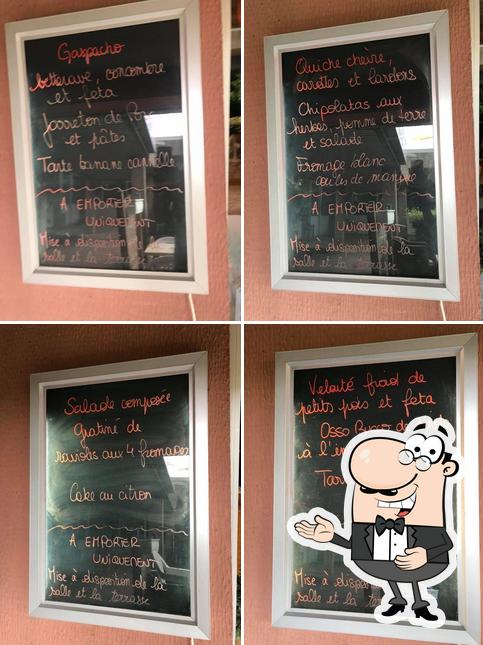 Gaspacho
betterave, concombre
et feta
de Porc
et pâtes
Tarte banane cannelle
A EMPORTER
UNIQUEMENT
Mise à disposition de la
salle et la terrasse
Quiche chèvre,
carottes et lardons
Chipolatas aux
herbes, pomme de terre
et salade
Fromage blanc
coulis de mangue
A EMPORTER
UNIQUEMENT
Mise à disposition de la
salle et la terrasse
Salade composée
Gratiné de
raviolis aux 4 fromages
Cake au citron
A EMPORTER
UNIQUEMENT
Mise à disposition de la
salle et la terrasse
Velouté froid de
petits pois et feta
Osso Bucco de
à l'i
Tar
Mise à dispos
salle et la te